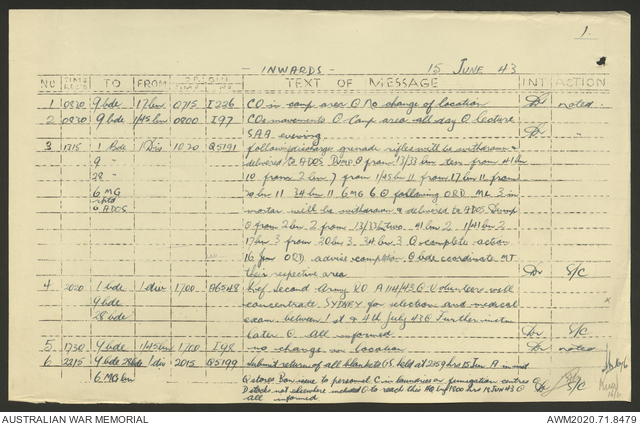 1.
- INWARDS - 15 JUNE 43
NO TIME RECD TO FROM ORIGIN TIME NO TEXT OF MESSAGE INT ACTION
1 0820 9 bde 17 bn 0715 I226 CO in camp area Q No change of location noted
2 0830 9 bde 1/45 bn 0800 I97 COs movements Q Camp area all day Q lecture
SAA evening
3 1315 1 Bde 1 Div 1020 Q5191 following discharger grenade rifles will be withdrawn &
9 " delivered to ADOS Dump Q from 13/33 bn ten from 41 bn
28 " 10 from 2 bn 7 from 1/45 bn 11 from 17 bn 11 from
6 MG 20 bn 11 34 bn 11 6 MG 6 Q following ORD ML 3 in
rptd mortar will be withdrawn & delivered to ADOS Dump
ADOS Q from 2 bn 2 from 13/33 bn two 41 bn 2 1/41 bn 2
17 bn 3 from 20 bn 3 34 bn 3 Q complete action
16 Jun ORD advise completion Q bde coordinate MT
their respective area S/C
4 2020 1 bde 1 div 1700 A6548 Second Army RO A114/43 Q Volunteers will
9 bde concentrate SYDNEY for selection and medical
28 bde exam between 1st & 4th July 43 Q Further instns
later Q All informed S/C
5 1730 9 bde 1/45 bn 1700 I98 no change in location noted
6 2215 9 bde 28 bde 1 div 2015 Q5199 Submit return of all blankets GS held at 2359 hrs 15 Jun A in
6 MG bn Q stores B on issue to personnel C in laundries or fumigation centres
D stocks not elsewhere included Q to reach this HQ by 1800 hrs 19 JUN 43 Q S/C
all informed
AUSTRALIAN WAR MEMORIAL AWM2020.71.8479